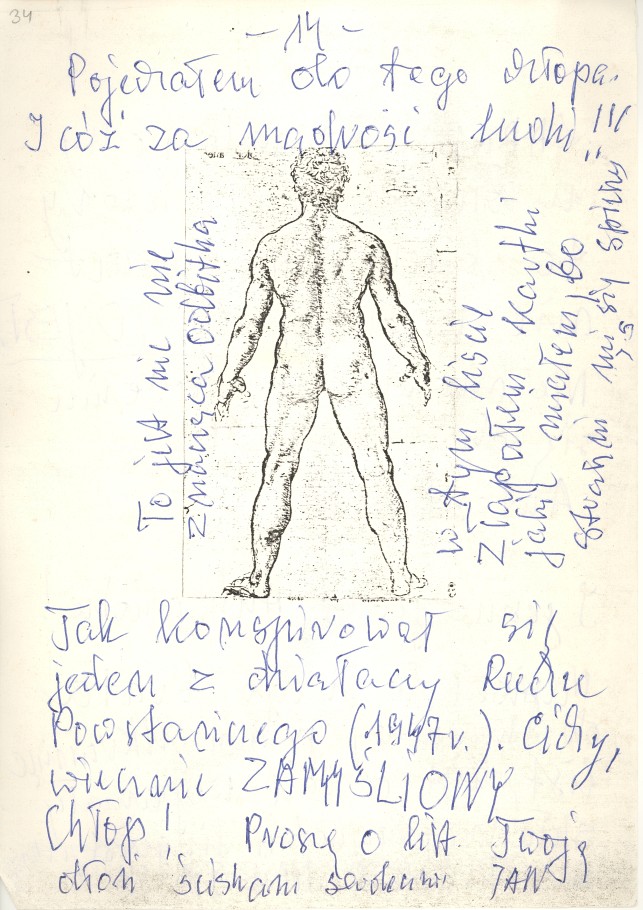 34
- 14 -
Pojechałem do tego chłopa.
I cóż za mądrości ludzi!!!
To jest nic nie
znacząca odbitka
w tym liście
złapałem kartki
jakie miałem, bo
strasznie mi się spieszy!!
Tak konspirował się
jeden z działaczy Ruchu
Powstańczego (1947r.). Cichy,
wiecznie ZAMYŚLIONY
Chłop! Proszę o list. Twoją
dłoń ściskam serdecznie JAN